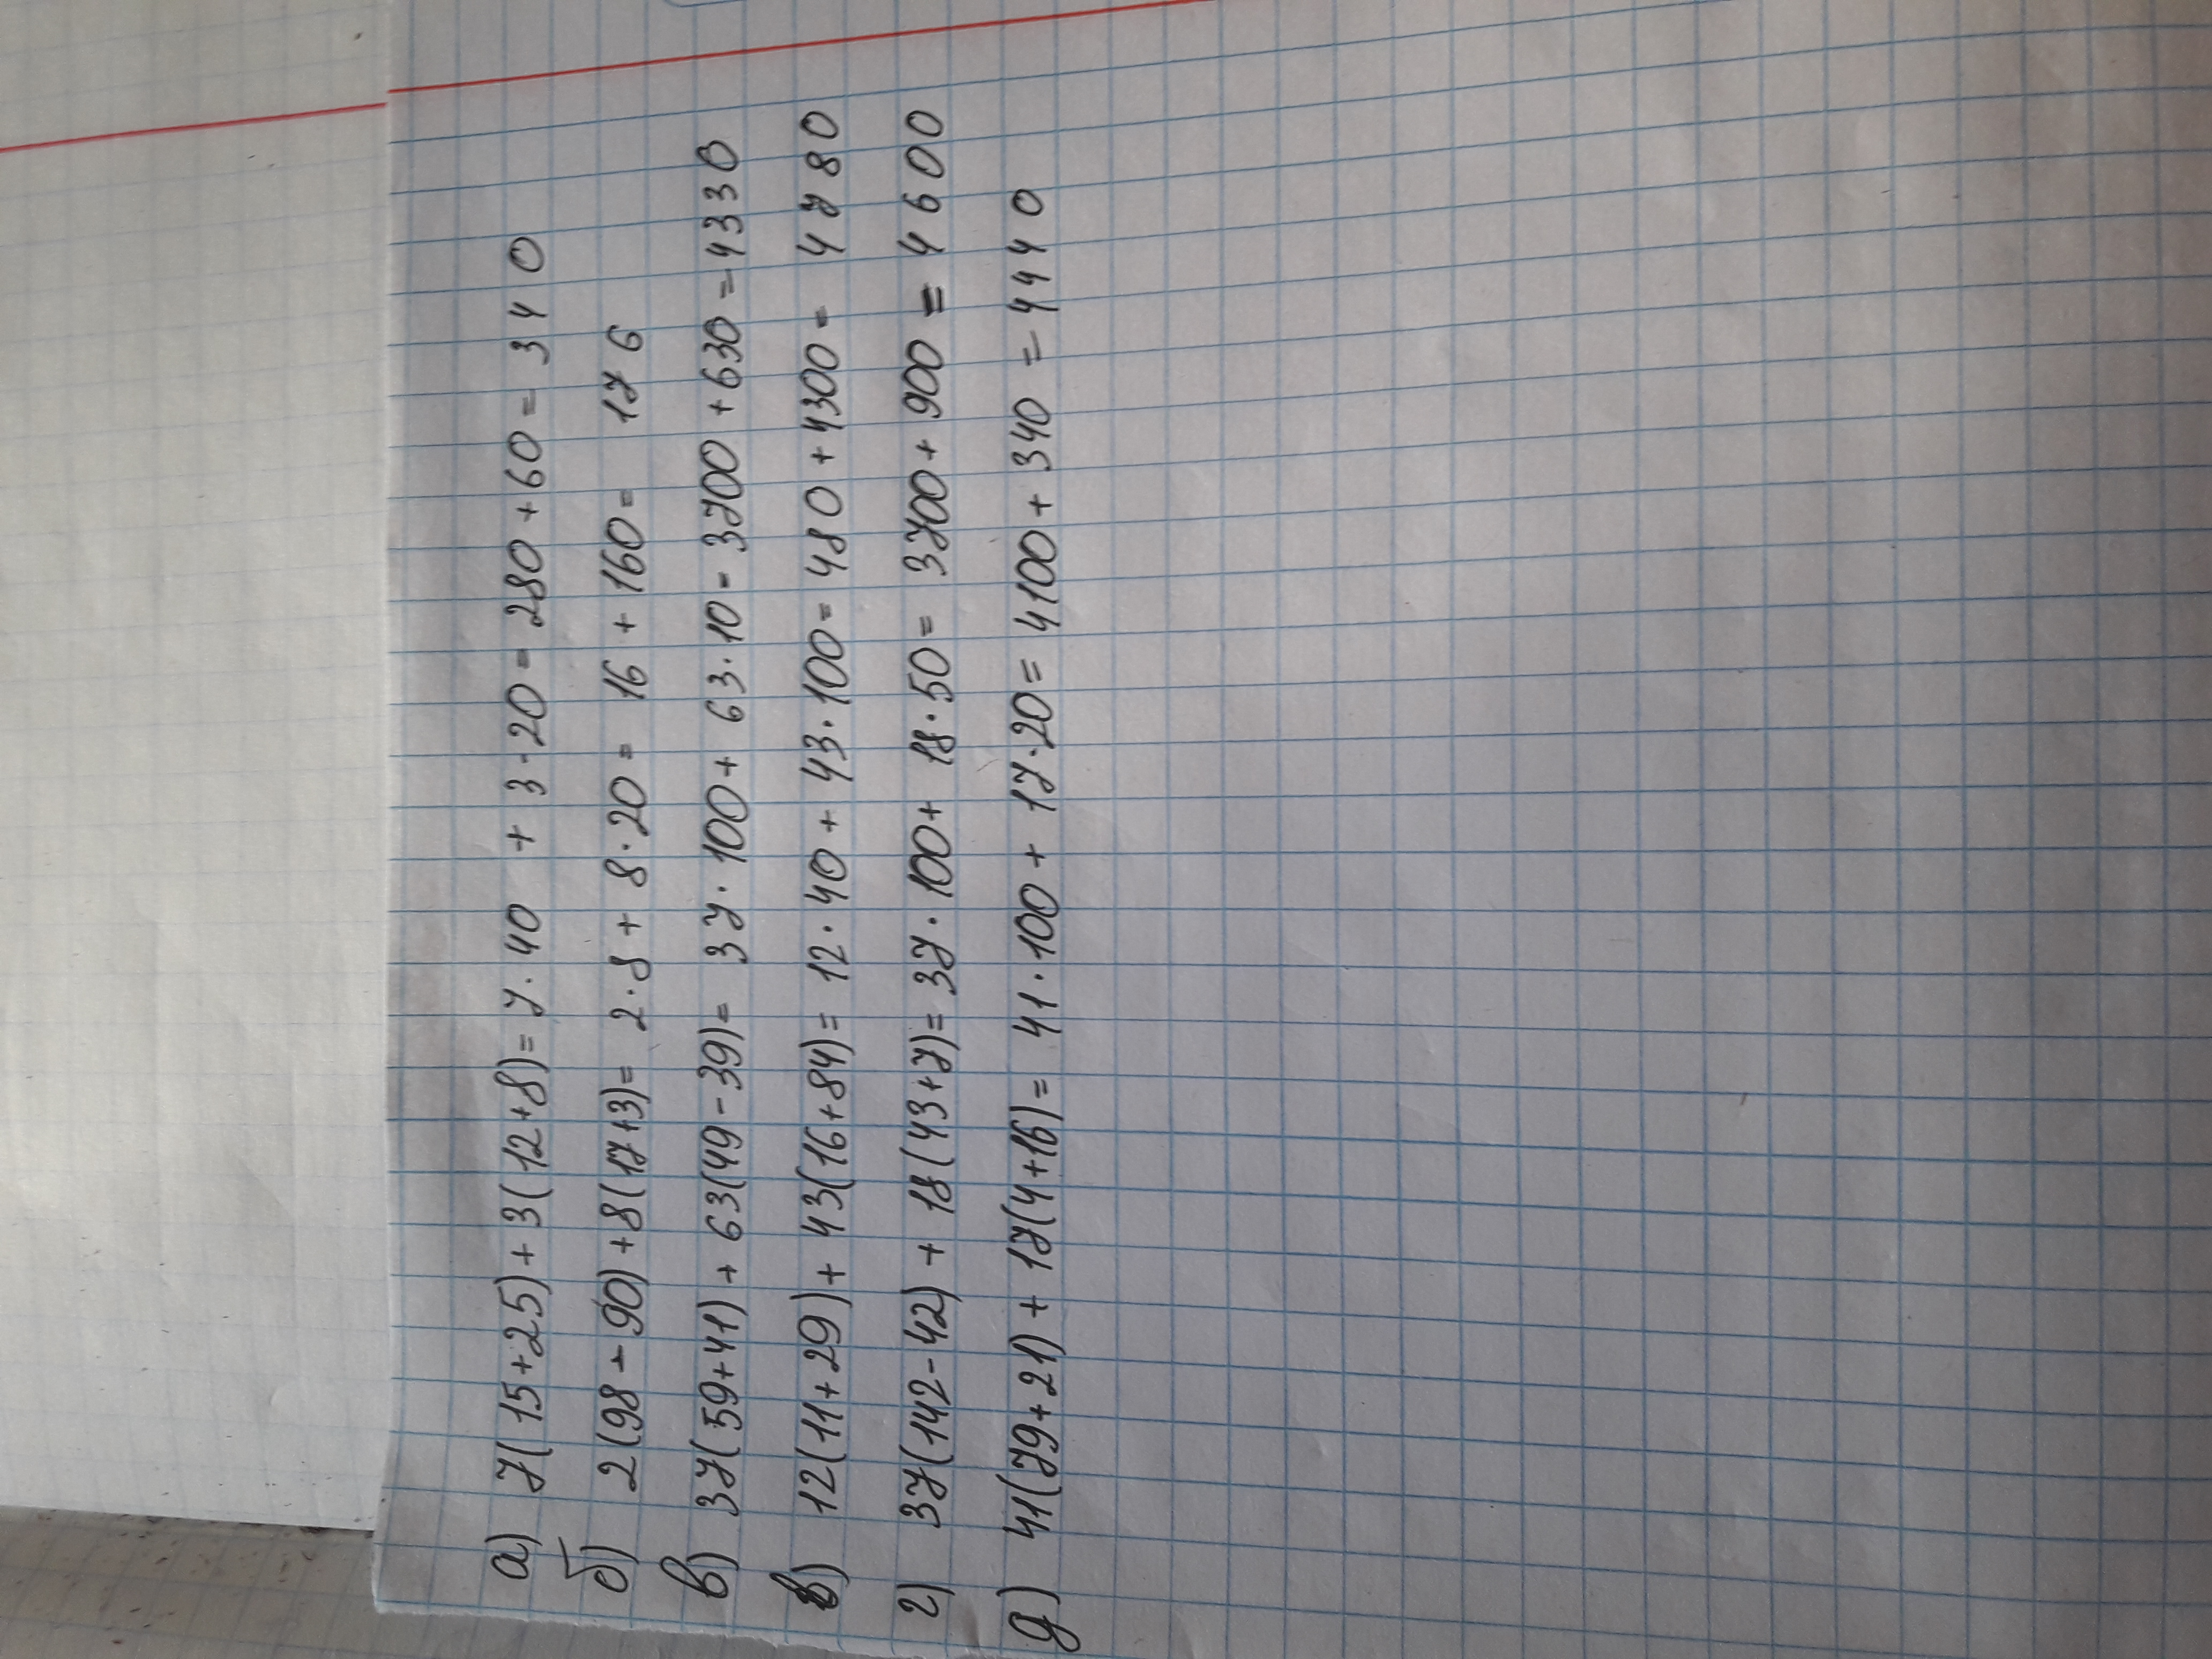 а) 7(15+25)+3(12+8)=7·40 + 3·20=280+60= 340
б) 2(98-90)+8(17+3)= 2·8+8·20= 16+160= 176
в) 37(59+41)+63(49-39)= 37·100+63·10=3700+630=4330
в) 12(11+29)+43(16+84)=12·40+43·100=480+4300= 4780
г) 37(142-42)+18(43+7)=37·100+18·50= 3700+900=4600
д) 41(79+21)+17(4+16)= 41·100+17·20=4100+340=4440